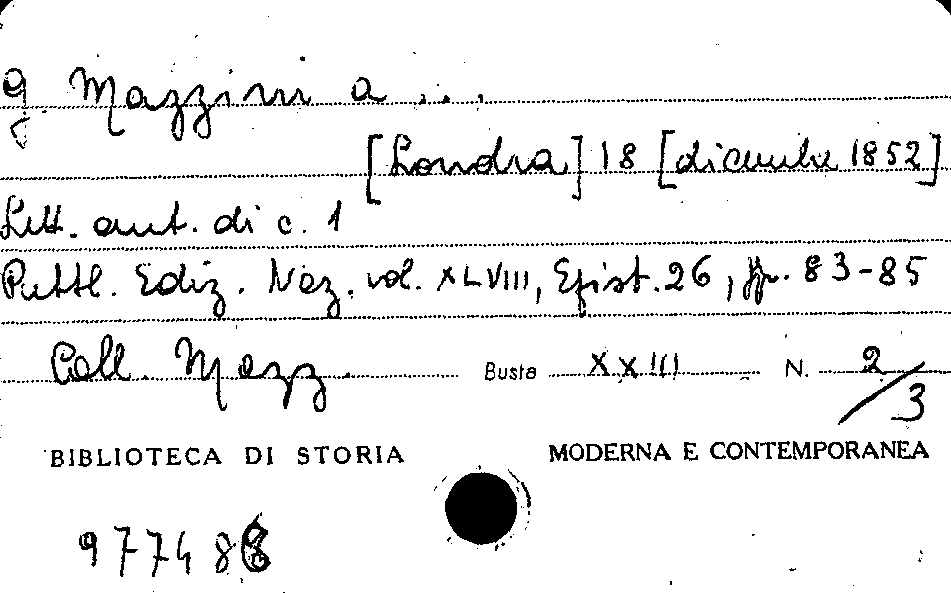 G. Mazzini a ...
[Londra] 18 [dicembre 1852]
Lett. aut. di c. 1
Pubbl. Ediz. Naz. vol. XLVIII, Epist. 26, pp. 83-85
Coll. Mazz. Busta XXIII N. 2/3
BIBLIOTECA DI STORIA MODERNA E CONTEMPORANEA